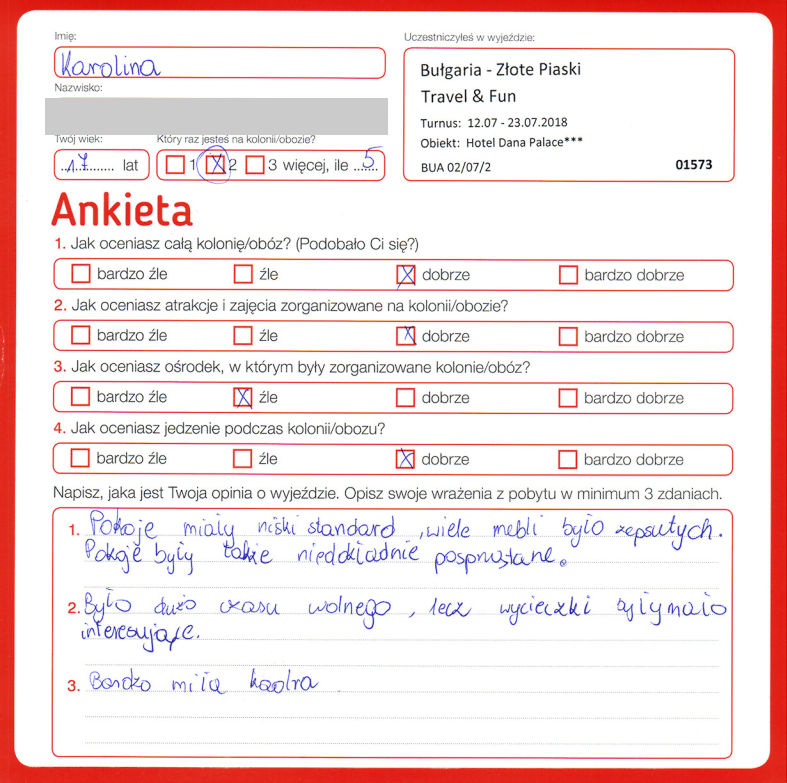 Imię:
Karolina
Nazwisko:
Twój wiek:
17 lat
Który raz jesteś na kolonii/obozie?
1 2 3 więcej, ile 5
Uczestniczyłeś w wyjeździe:
Bułgaria - Złote Piaski
Travel & Fun
Turnus: 12.07 - 23.07.2018
Obiekt: Hotel Dana Palace***
BUA 02/07/2 01573
Ankieta
1. Jak oceniasz całą kolonię/obóz? (Podobało Ci się?)
bardzo źle źle dobrze bardzo dobrze
2. Jak oceniasz atrakcje i zajęcia zorganizowane na kolonii/obozie?
bardzo źle źle dobrze bardzo dobrze
3. Jak oceniasz ośrodek, w którym były zorganizowane kolonie/obóz?
bardzo źle źle dobrze bardzo dobrze
4. Jak oceniasz jedzenie podczas kolonii/obozu?
bardzo źle źle dobrze bardzo dobrze
Napisz, jaka jest Twoja opinia o wyjeździe. Opisz swoje wrażenia z pobytu w minimum 3 zdaniach.
1. Pokoje miały niski standard, wiele mebli było zepsutych.
Pokoje były także niedokładnie posprzątane.
2. Było dużo czasu wolnego, lecz wycieczki były mało
interesujące.
3. Bardzo miła kadra